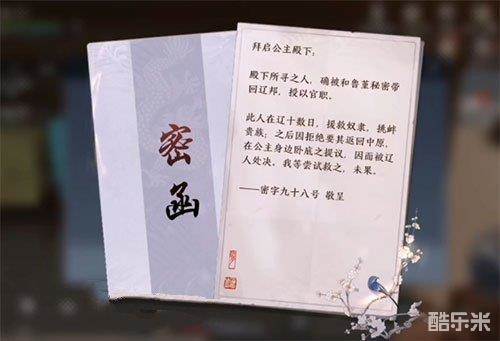 密函
拜启公主殿下：
殿下所寻之人，确被和鲁堇秘密带
回辽邦，授以官职。
此人在辽十数日，援救奴隶，挑衅
贵族；之后因拒绝要其返回中原，
在公主身边卧底之提议，因而被辽
人处决。我等尝试救之，未果。
——密字九十八号 敬呈
酷乐米